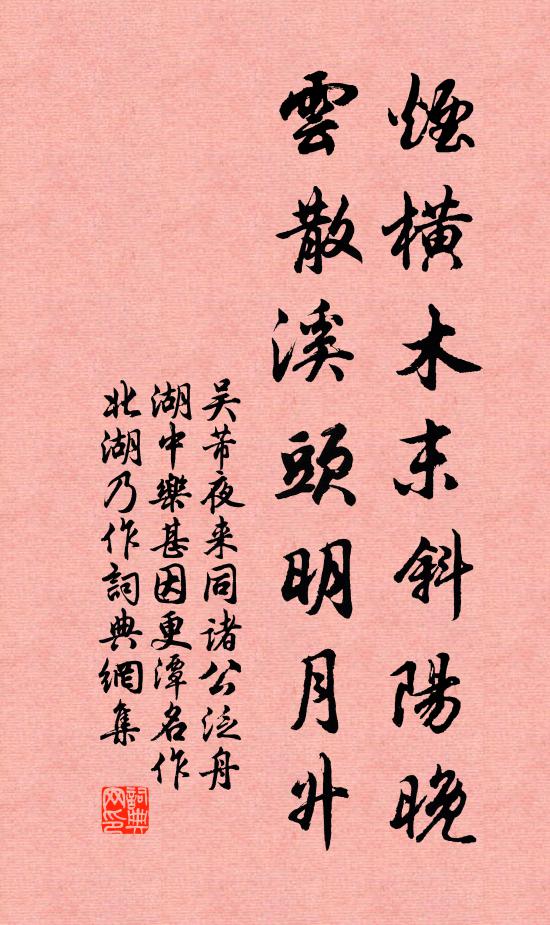 煙橫木末斜陽晚
雲散溪頭明月升
吴芾夜来同諸公泛舟
湖中樂甚因更潭名作
北湖乃作詞典網集
詞典
网印